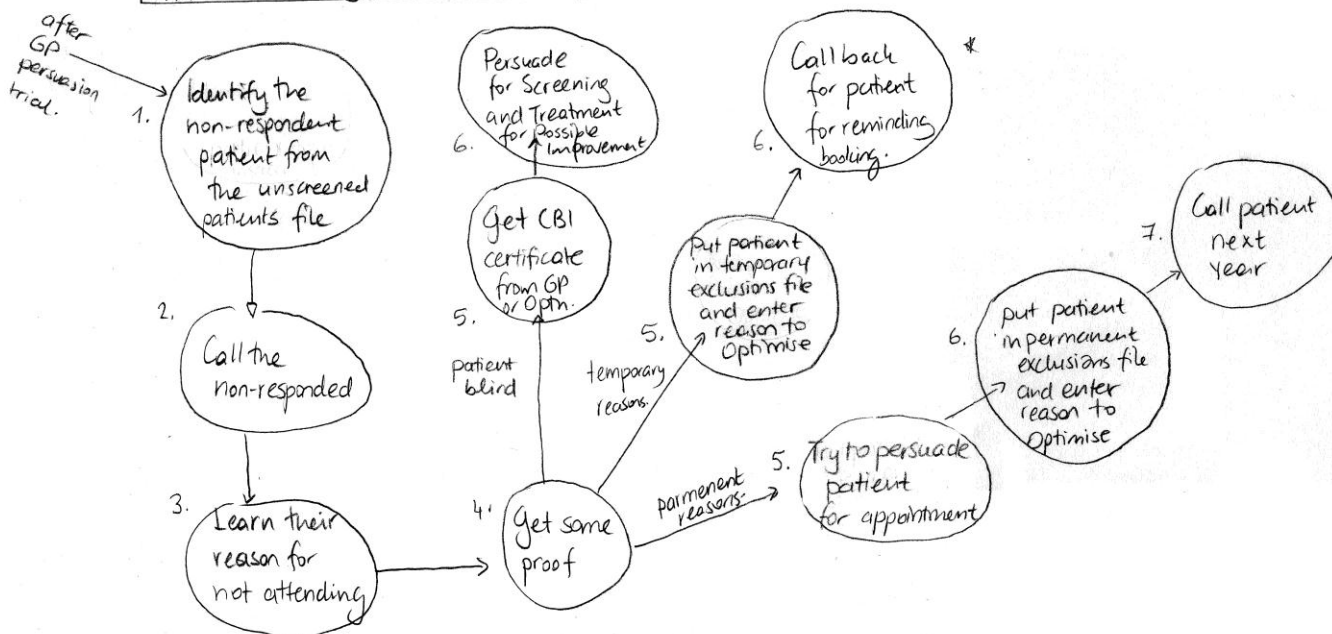 after
GP
persuasion
trial.
1.
Identify the
non-respondent
patient from
the unscreened
patients file
2.
Call the
non-responded
3.
Learn their
reason for
not attending
4.
Get some
proof
patient
blind
5.
Get CBI
certificate
from GP
or Optn.
6.
Persuade
for Screening
and Treatment
for Possible
Improvement
temporary
reasons.
5.
put patient
in temporary
exclusions file
and enter
reason to
Optimise
6.
Call back
for patient
for reminding
booking.
*
parmenent
reasons.
5.
Try to persuade
patient
for appointment
6.
put patient
in permanent
exclusions file
and enter
reason to
Optimise
7.
Call patient
next
year